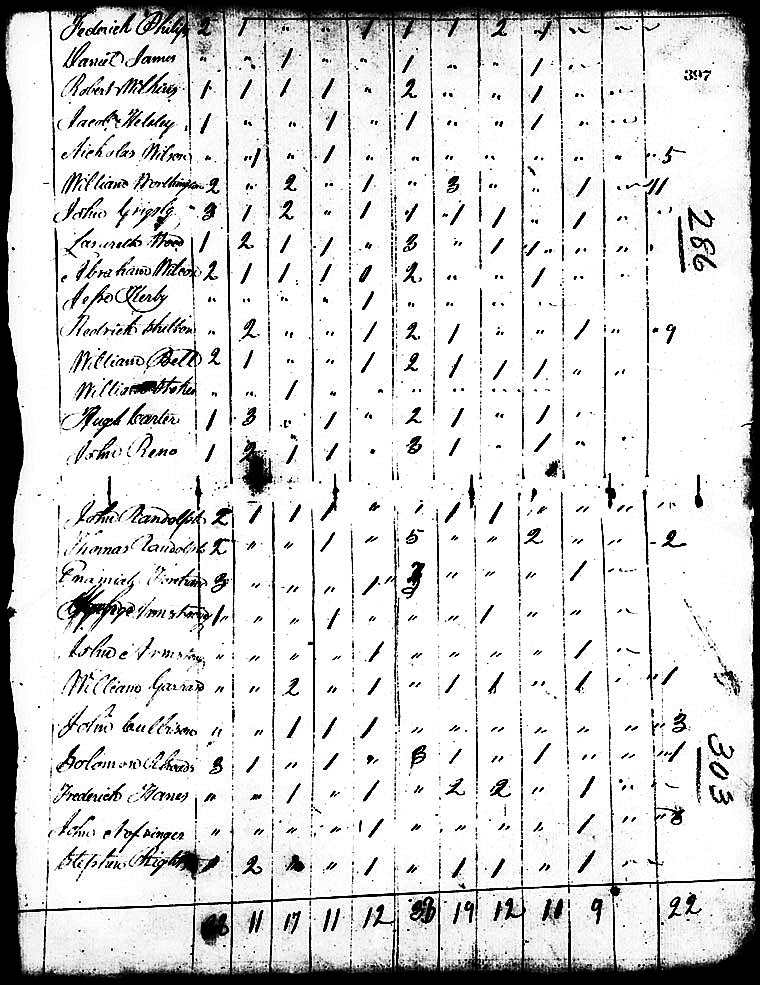 Federick Philips 2 1 " " 1 1 1 2 1 " "
Daniel James " " 1 " " 1 " " 1 " "
397
Robert Wilkins 1 1 1 1 " 2 " " 1 " "
Jacob Helsley 1 " " 1 " 1 " " 1 " "
Nicholas Wilson " 1 " 1 " " " " " " " 5
William 2 " 2 " 1 " 3 " " 1 " 11
John Grigsby 3 1 2 " 1 1 1 1 " 1 " "
Wood 1 2 1 1 " 3 " 1 1 " "
286
Abraham Wilson 2 1 1 1 0 2 " " 1 " "
Kerby " " " " 1 " " " "
Redrick Shelton " 2 " " 1 2 1 " " 1 " 9
William Bell 2 1 " " 1 2 1 1 1 " "
William Stokes " " 1 " " " " " "
Hugh Carter 1 3 " 1 " 2 1 " 1 " "
John Reno 1 2 1 1 " 3 1 " 1 " "
John Randolph 2 1 1 1 " " 1 1 " " " "
Thomas Randolph 2 " " 1 " 5 " " 2 " " 2
3 " " " 1 " " " 1 "
Armstrong 1 " " 1 " " " 1 " " "
John Armstrong " " " " 1 " " " " 1 "
William Garrard " " 2 " 1 " 1 1 " 1 " 1
John Cullison " " 1 1 1 " " " " " " 3
Solomon Rhoads 3 1 " 1 " 3 1 " 1 " " 1
303
Frederick Hanes " " 1 " 1 " 2 2 " 1 " "
John Nofsinger " " " " 1 " " " " 1 " 3
Stephen 1 2 " " 1 " 1 1 " 1 "
11 17 11 12 19 12 11 9 22